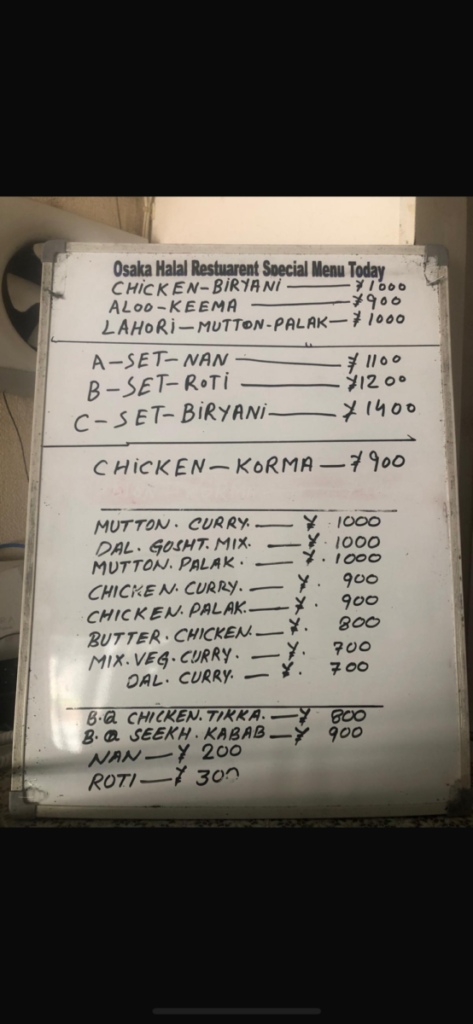 Osaka Halal Restuarent Special Menu Today
CHICKEN-BIRYANI — ¥1000
ALOO-KEEMA — ¥900
LAHORI-MUTTON-PALAK — ¥1000
A-SET-NAN — ¥1100
B-SET-ROTI — ¥1200
C-SET-BIRYANI — ¥1400
CHICKEN-KORMA — ¥900
MUTTON. CURRY. — ¥. 1000
DAL. GOSHT. MIX. — ¥. 1000
MUTTON. PALAK. — ¥. 1000
CHICKEN. CURRY. — ¥. 900
CHICKEN. PALAK. — ¥. 900
BUTTER. CHICKEN. — ¥. 800
MIX. VEG. CURRY. — ¥. 700
DAL. CURRY. — ¥. 700
B.Q CHICKEN. TIKKA. — ¥ 800
B.Q SEEKH. KABAB — ¥ 900
NAN — ¥ 200
ROTI — ¥ 300